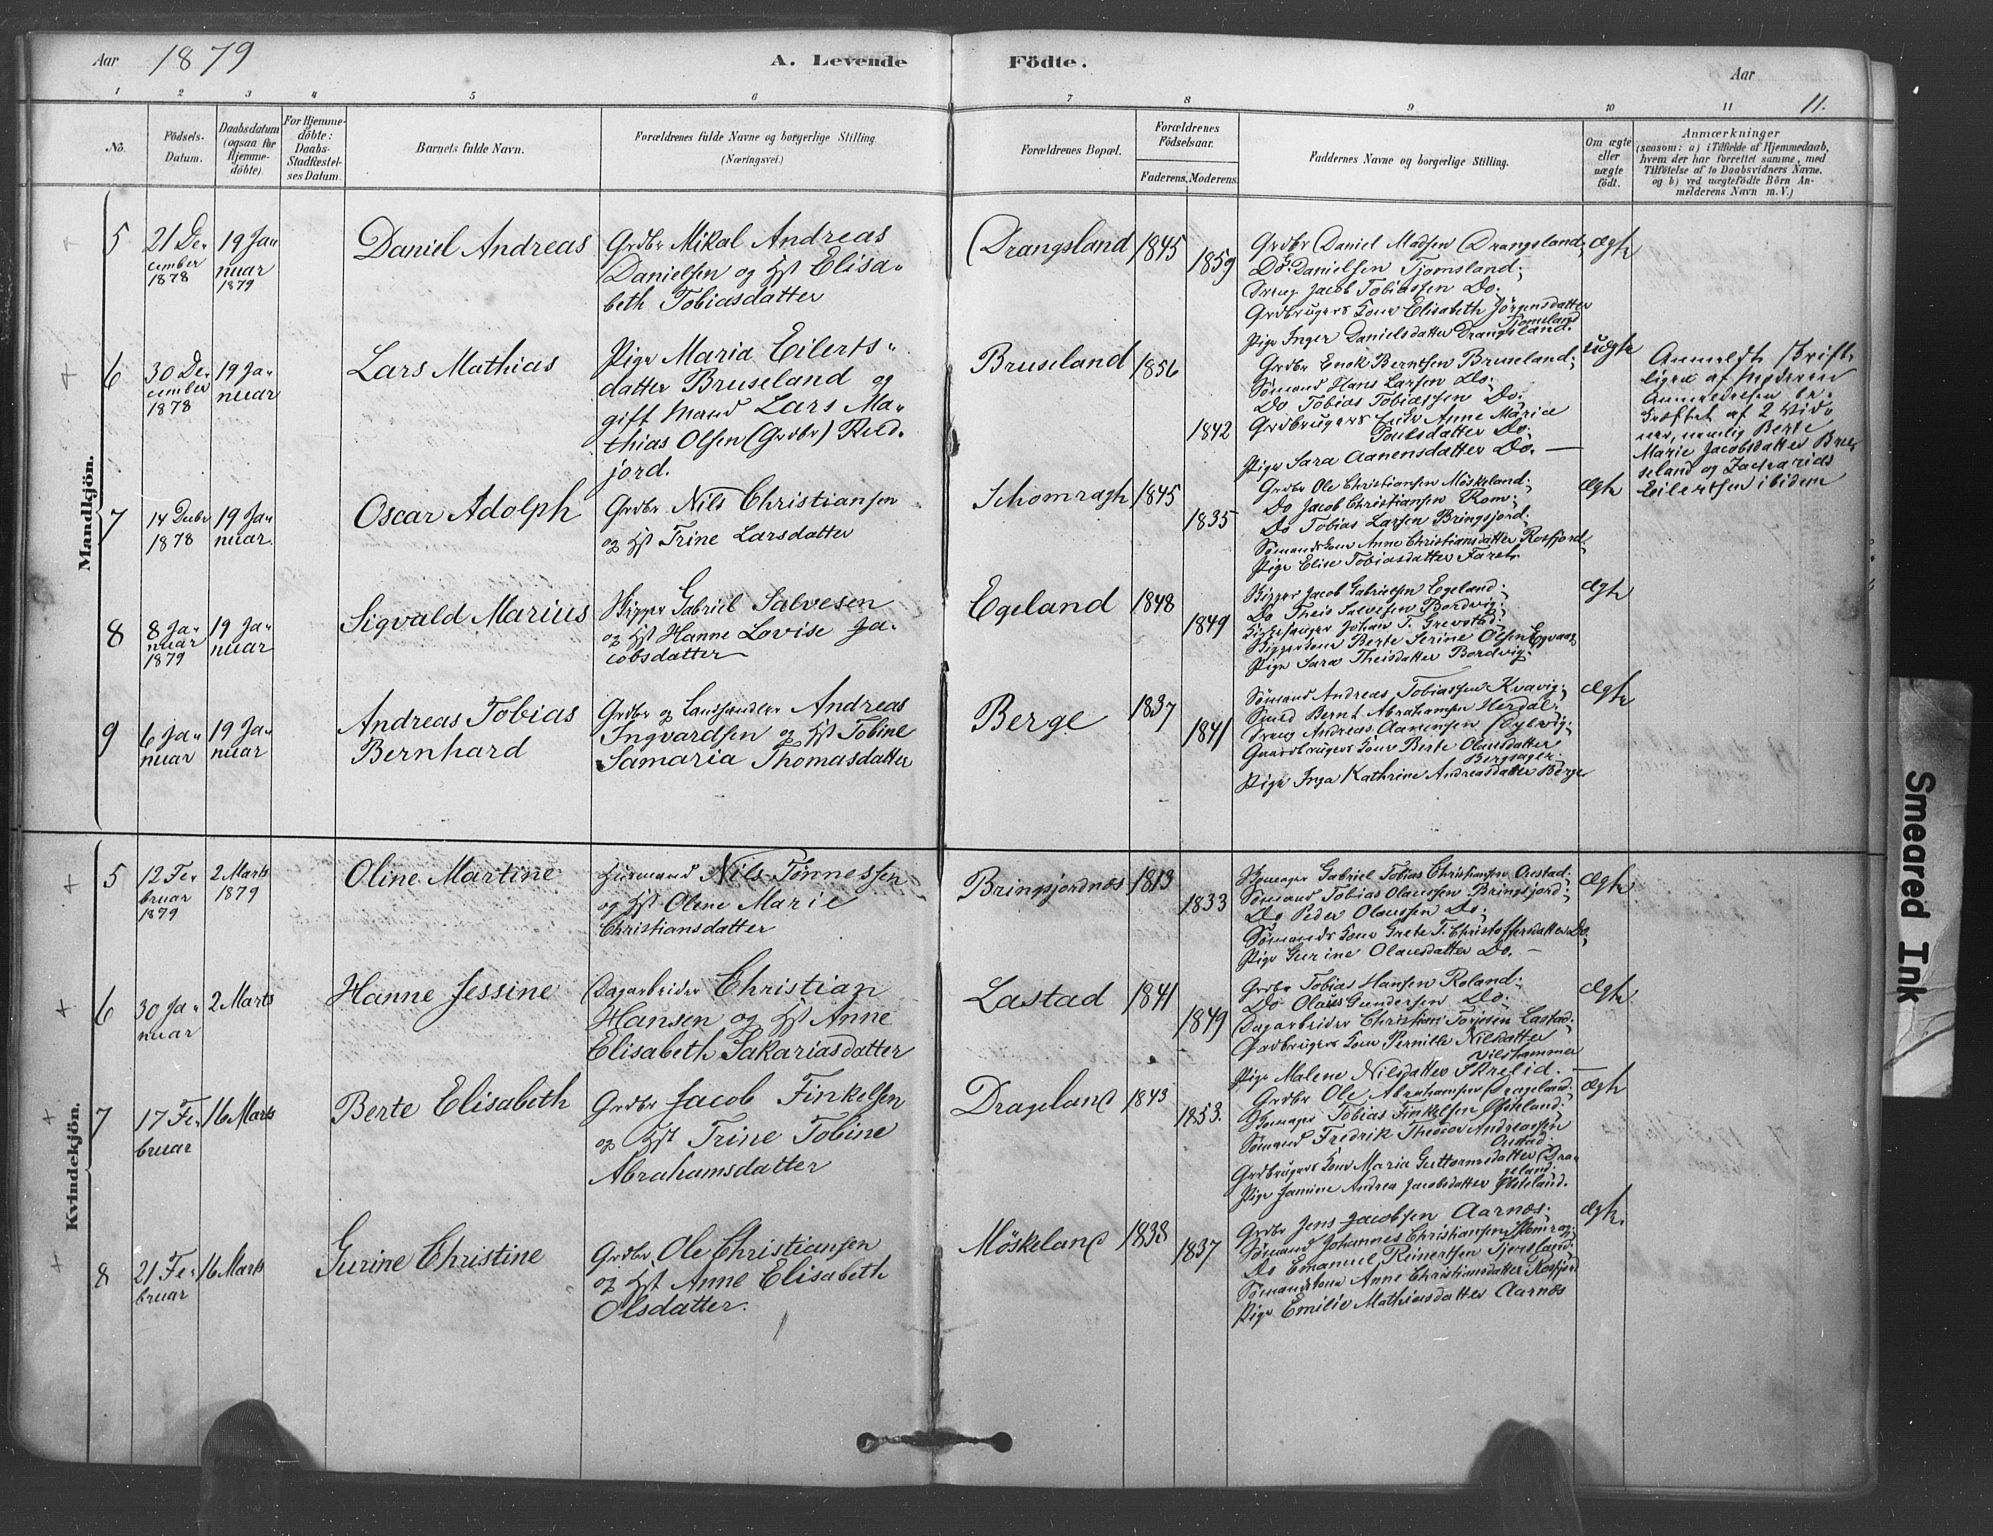 Aar 1879
A. Levende Födte.
Aar
11.
1 2 3 4 5 6 7 8 9 10 11
No.
Födsels-
Datum.
Daabsdatum
(ogsaa for
Hjemme-
döbte).
For Hjemme-
döbte:
Daabs-
Stadfæstel-
ses Datum.
Barnets fulde Navn.
Forældrenes fulde Navne og borgerlige Stilling
(Næringsvei.)
Forældrenes Bopæl.
Forældrenes
Födselsaar.
Faderens. Moderens.
Faddernes Navne og borgerlige Stilling.
Om ægte
eller
uægte
født.
Anmærkninger
(saasom: a) i Tilfælde af Hjemmedaab,
hvem der har forrettet samme, med
Tilföielse af to Daabsvidners Navne,
og b) ved uægtefödte Börn An-
melderens Navn m. V.)
Mandkjön.
5
21 De-
cember
1878
19 Ja-
nuar
1879
Daniel Andreas
Grdbr Mikal Andreas
Danielsen og Hst Elisa-
beth Tobiasdatter
Drangsland
1845
1859
Grdbr Daniel Madsen Drangsland;
Do Danielsen Tjomsland;
Dreng Jacob Tobiassen Do.
Grdbrugers Kone Elisabeth Jörgensdatter
Tjomsland
Pige Inger Danielsdatter Drangsland.
ægte
6
30 De-
cember
1878
19 Ja-
nuar
Lars Mathias
Pige Maria Eilerts-
datter Bruseland og
gift Mand Lars Ma-
thias Olsen (Grdbr) Rød-
jord.
Bruseland
1856
1842
Grdbr Enok Berntsen Bruseland;
Sømand Hans Larsen Do;
Do Tobias Tobiassen Do;
Grdbrugers Enke Anne Maria
Poulsdatter Do;
Pige Sara Aanensdatter Do.
uægte
Anmeldt skrift-
ligen af Moderen
Anmeldelsen be-
kræftet af 2 Vid-
ner, nemlig Berte
Marie Jacobsdatter Bru-
seland og Zacharias
Eilertsen ibidem
7
14 Decbr
1878
19 Ja-
nuar.
Oscar Adolph
Grdbr Nils Christiansen
og Hst Trine Larsdatter
Schomragh
1845
1835
Grdbr Ole Christiansen Møskeland;
Do Jacob Christiansen Rom;
Do Tobias Larsen Bringsjord;
Sømands Kone Anne Christiansdatter Rosfjord
Pige Elise Tobiasdatter
ægte
8
8 Ja-
nuar
1879
19 Ja-
nuar
Sigvald Marius
Skipper Gabriel Salvesen
og Hst Hanne Lovise Ja-
cobsdatter
Egeland
1848
1849
Skipper Jacob Gabrielsen Egeland;
Do Theis Salvesen Bordvig;
Kirkesanger Johan T. Grevstad;
Skipperkone Berte Serine Olsen
Pige Sara Theisdatter Bordvig;
ægte
9
6 Ja-
nuar
19 Ja-
nuar
Andreas Tobias
Bernhard
Grdbr og Landhandler Andreas
Ingvardsen og Hst Tobine
Samaria Thomasdatter
Berge
1837
1841
Sømand Andreas Tobiassen Kvavig;
Smed Bernt Abrahamsen Herdal;
Dreng Andreas Aanensen
Gaardbrugers Kone Berte Olausdatter
Bergsager;
Pige Inga Kathrine Andreasdatter Berge
ægte
Kvindekjön.
5
12 Fe-
bruar
1879
2 Marts
1879
Oline Martine
Huusmand Nils Tønnessen
og Hst Olene Marie
Christiansdatter
Bringsjordnes
1813
1833
Skomager Gabriel Tobias Christiansen
Sømand Tobias Olaussen Bringsjord;
Do Peder Olaussen Do;
Sømands Kone Grete T. Christoffersdatter Do,
Pige Gurine Olausdatter Do.
ægte
6
30 Ja-
nuar
2 Marts
Hanne Jessine
Dagarbeider Christian
Hansen og Hst Anne
Elisabeth Sakariasdatter
Lastad
1841
1849
Grdbr Tobias Hansen Roland;
Do Olaus Gundersen Do;
Dagarbeider Christian Torjusen Lastad;
Gardbrugers Kone Pernille Nilsdatter
Vilshammer
Pige Malene Nilsdatter Skrelid.
ægte
7
17 Fe-
bruar
16 Marts
Berte Elisabeth
Grdbr Jacob Finkelsen
og Hst Trine Tobine
Abrahamsdatter
Drageland
1843
1853.
Grdbr Ole Abrahamsen Drageland;
Skomager Tobias Finkelsen Ødeland;
Sømand Fredrik Theodor Andreassen
Grdbrugers Kone Maria Guttormsdatter Dra-
geland;
Pige Jamine Andrea Jacobsdatter Ødeland.
ægte
8
21 Fe-
bruar
16 Marts
Gurine Christine
Grdbr Ole Christiansen
og Hst Anne Elisabeth
Olsdatter.
Møskeland
1838
1837
Grdbr Jens Jacobsen Aarnæs;
Sømand Johannes Christiansen Skomrag;
Do Emanuel Reinertsen
Sømandskone Anne Christiansdatter Rosfjord
Pige Emilie Mathiasdatter Aarnæs
ægte.
Smeared Ink